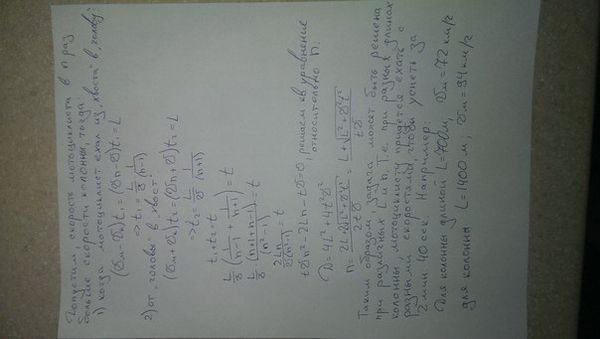 Допустим, скорость мотоциклиста в n раз
больше скорости колонны, тогда
1) когда мотоциклист ехал из „хвоста" в „голову":
(υм - υк)t₁ = (υn - υ)t₁ = L
=> t₁ = L/υ · 1/(n-1)
2) от „головы" в „хвост"
(υм + υк)t₂ = (υn + υ)t₂ = L
=> t₂ = L/υ · 1/(n+1)
t₁ + t₂ = t
L/υ (1/(n-1) + 1/(n+1)) = t
L/υ · (n+1+n-1)/(n²-1) = t
2Ln/(υ(n²-1)) = t
tυn² - 2Ln - tυ = 0, решаем кв. уравнение
относительно n:
D = 4L² + 4t²υ²
n = (2L + 2√(L² + υ²t²))/(2tυ) = (L + √(L² + υ²t²))/(tυ)
Таким образом, задача может быть решена
при различных L и n. Т.е. при разных длинах
колонны, мотоциклисту придется ехать с
разными скоростями, чтобы успеть за
2 мин 40 сек. Например:
Для колонны длиной L = 700м, υм = 72 км/ч
для колонны L = 1400 м; υм = 94 км/ч